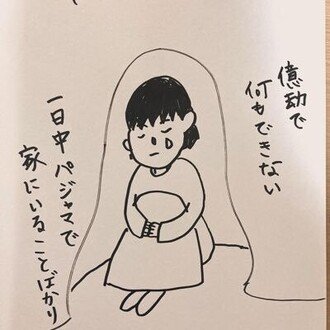 億劫で
何もできない
一日中パジャマで
家にいることばかり